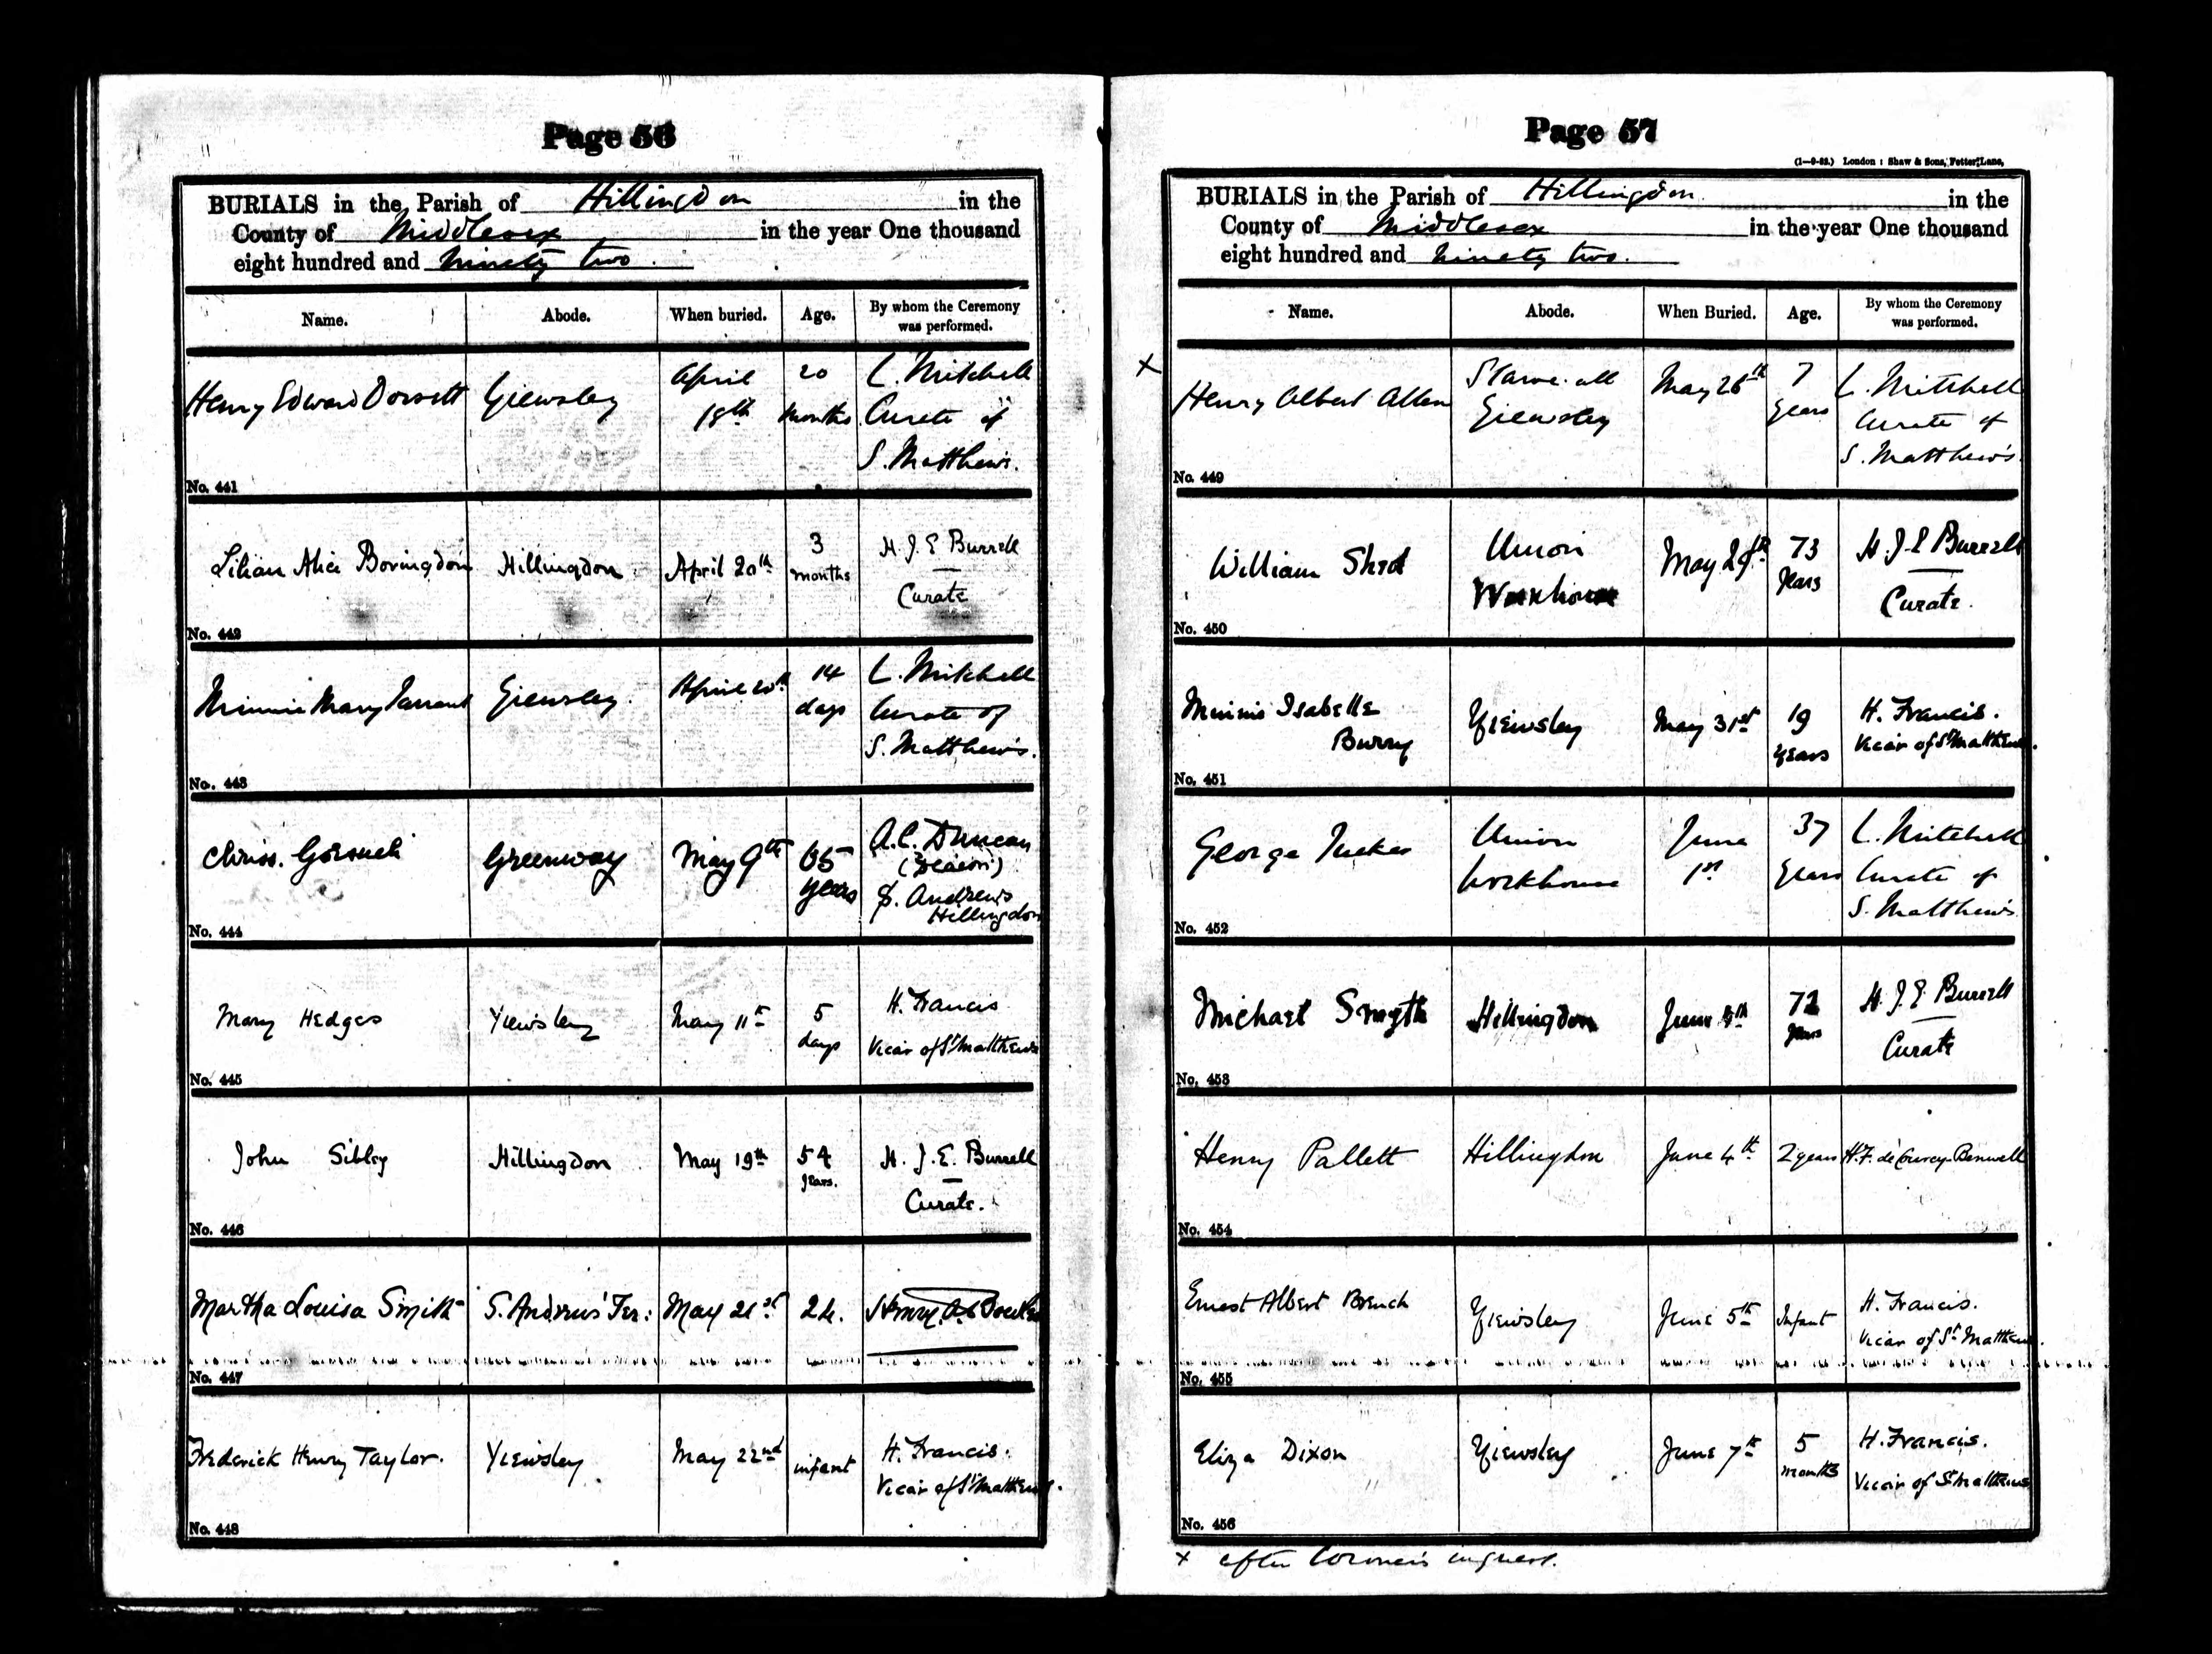 Page 56
BURIALS in the Parish of Hillingdon in the
County of Middlesex in the year One thousand
eight hundred and ninety two.
Name. Abode. When buried. Age. By whom the Ceremony was performed.
Henry Edward Dorsett Yiewsley April 18th 20 months L. Mitchell Curate of S. Matthew's.
No. 441
Lilian Alice Bovingdon Hillingdon April 20th 3 months H. J. E Burrell Curate
No. 442
Minnie Mary Tarrant Yiewsley. April 20th 14 days L. Mitchell Curate of S. Matthew's.
No. 443
Chriss. Greenway May 9th 65 years A. C. Duncan (Deacon) S. Andrews Hillingdon
No. 444
Mary Hedges Yiewsley May 11th 5 days H. Francis Vicar of St Matthews
No. 445
John Sibley Hillingdon May 19th 54 years. H. J. E. Burrell Curate.
No. 446
Martha Louisa Smith S. Andrews' Ter: May 21st 24.
No. 447
Frederick Henry Taylor. Yiewsley May 22nd infant H. Francis. Vicar of St Matthews.
No. 448
Page 57
(1—9-82.) London : Shaw & Sons, Fetter Lane,
BURIALS in the Parish of Hillingdon in the
County of Middlesex in the year One thousand
eight hundred and ninety two.
Name. Abode. When Buried. Age. By whom the Ceremony was performed.
x Henry Albert Allen Yiewsley May 28th 7 years L. Mitchell Curate of S. Matthew's
No. 449
William Union Workhouse May 29th 73 years H. J. E Burrell Curate.
No. 450
Minnie Isabelle Burry Yiewsley May 31st 19 years H. Francis. Vicar of St Matthews.
No. 451
George Tucker Union Workhouse June 1st 37 years L. Mitchell Curate of S. Matthew's
No. 452
Michael Smyth Hillingdon June 72 years H. J. E Burrell Curate
No. 453
Henry Pallett Hillingdon June 4th 2 years H. F. de Courcy-Benwell
No. 454
Ernest Albert Brench Yiewsley June 5th Infant H. Francis. Vicar of St Matthews.
No. 455
Eliza Dixon Yiewsley June 7th 5 months H. Francis. Vicar of St Matthews
No. 456
x after Coroner's inquest.